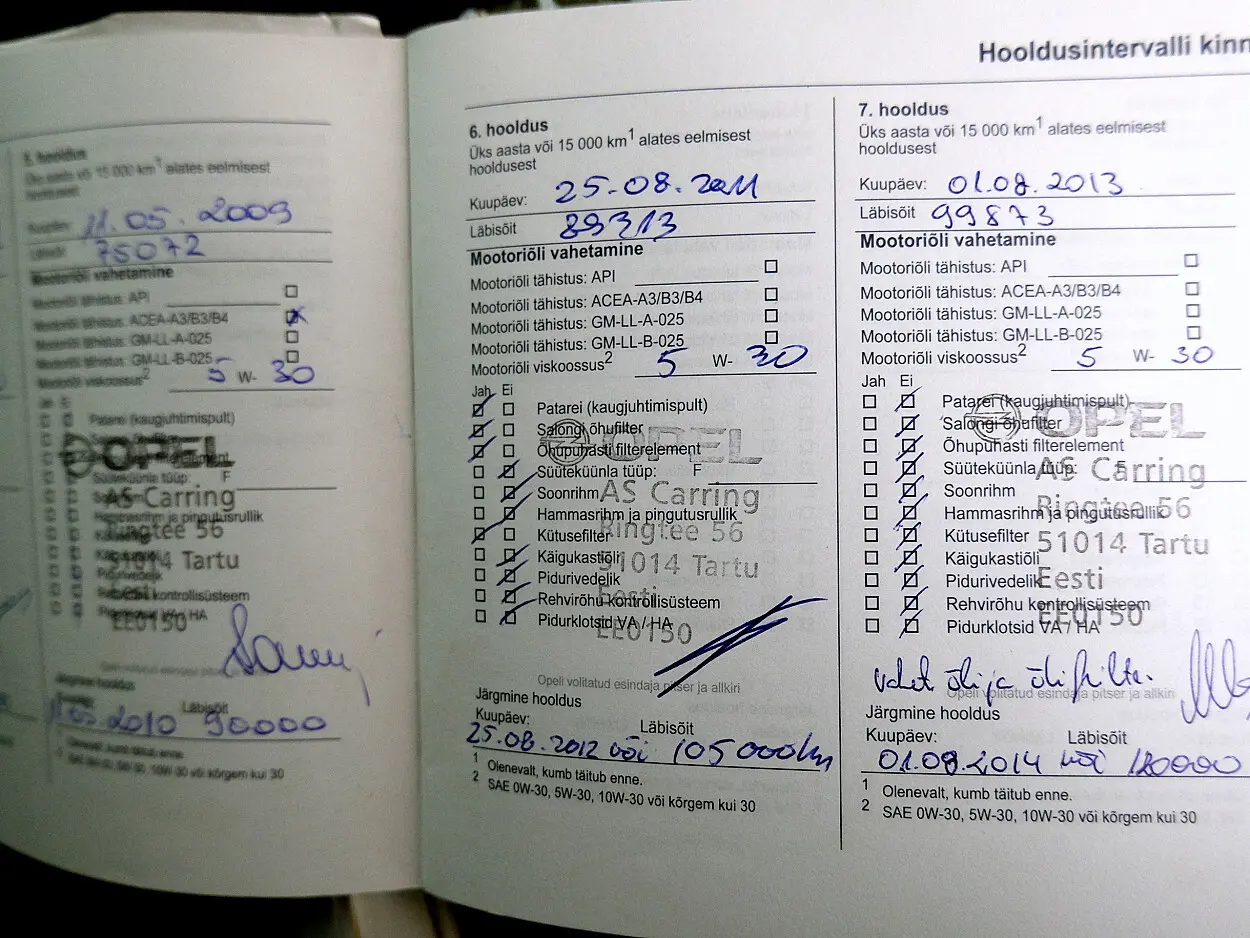 Hooldusintervalli kinn
5. hooldus
Üks aasta või 15 000 km1 alates eelmisest
hooldusest
Kuupäev: 11.05.2009
Läbisõit 75072
Mootoriõli vahetamine
Mootoriõli tähistus: API
Mootoriõli tähistus: ACEA-A3/B3/B4
Mootoriõli tähistus: GM-LL-A-025
Mootoriõli tähistus: GM-LL-B-025
Mootoriõli viskoossus2 5 W- 30
Jah Ei
Patarei (kaugjuhtimispult)
OPEL
Süüteküünla tüüp: F
AS Carring
Hammasrihm ja pingutusrullik
Ringtee 56
51014 Tartu
Pidurivedelik
Eesti
Rehvirõhu kontrollisüsteem
Pidurklotsid VA / HA
EE0150
Opeli volitatud esindaja
Järgmine hooldus
Läbisõit
11.05.2010 90000
1 Olenevalt, kumb täitub enne.
2 SAE 0W-30, 5W-30, 10W-30 või kõrgem kui 30
6. hooldus
Üks aasta või 15 000 km1 alates eelmisest
hooldusest
Kuupäev: 25.08.2011
Läbisõit 89313
Mootoriõli vahetamine
Mootoriõli tähistus: API
Mootoriõli tähistus: ACEA-A3/B3/B4
Mootoriõli tähistus: GM-LL-A-025
Mootoriõli tähistus: GM-LL-B-025
Mootoriõli viskoossus2 5 W- 30
Jah Ei
Patarei (kaugjuhtimispult)
Salongi õhufilter
OPEL
Õhupuhasti filterelement
Süüteküünla tüüp: F
Soonrihm
AS Carring
Hammasrihm ja pingutusrullik
Ringtee 56
Kütusefilter
Käigukastiõli
51014 Tartu
Pidurivedelik
Eesti
Rehvirõhu kontrollisüsteem
Pidurklotsid VA / HA
EE0150
Opeli volitatud esindaja pitser ja allkiri
Järgmine hooldus
Kuupäev: Läbisõit
25.08.2012 või 105000km
1 Olenevalt, kumb täitub enne.
2 SAE 0W-30, 5W-30, 10W-30 või kõrgem kui 30
7. hooldus
Üks aasta või 15 000 km1 alates eelmisest
hooldusest
Kuupäev: 01.08.2013
Läbisõit 99873
Mootoriõli vahetamine
Mootoriõli tähistus: API
Mootoriõli tähistus: ACEA-A3/B3/B4
Mootoriõli tähistus: GM-LL-A-025
Mootoriõli tähistus: GM-LL-B-025
Mootoriõli viskoossus2 5 W- 30
Jah Ei
Patarei (kaugjuhtimispult)
OPEL
Salongi õhufilter
Õhupuhasti filterelement
Süüteküünla tüüp: F
AS Carring
Soonrihm
Hammasrihm ja pingutusrullik
Ringtee 56
Kütusefilter
51014 Tartu
Käigukastiõli
Pidurivedelik
Eesti
Rehvirõhu kontrollisüsteem
EE0150
Pidurklotsid VA / HA
vahet õli ja õlifilter.
Opeli volitatud esindaja pitser ja allkiri
Järgmine hooldus
Kuupäev: Läbisõit
01.08.2014 või 120000
1 Olenevalt, kumb täitub enne.
2 SAE 0W-30, 5W-30, 10W-30 või kõrgem kui 30